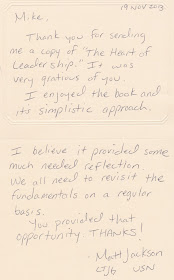 19 NOV 2013
Mike,
Thank you for sending
me a copy of "The Heart of
Leadership." It was
very gratious of you.
I enjoyed the book and
its simplistic approach.
I believe it provided some
much needed reflection
We all need to revisit the
fundamentals on a regular
basis.
You provided that
opportunity THANKS!
- Matt Jackson
LTJG USN